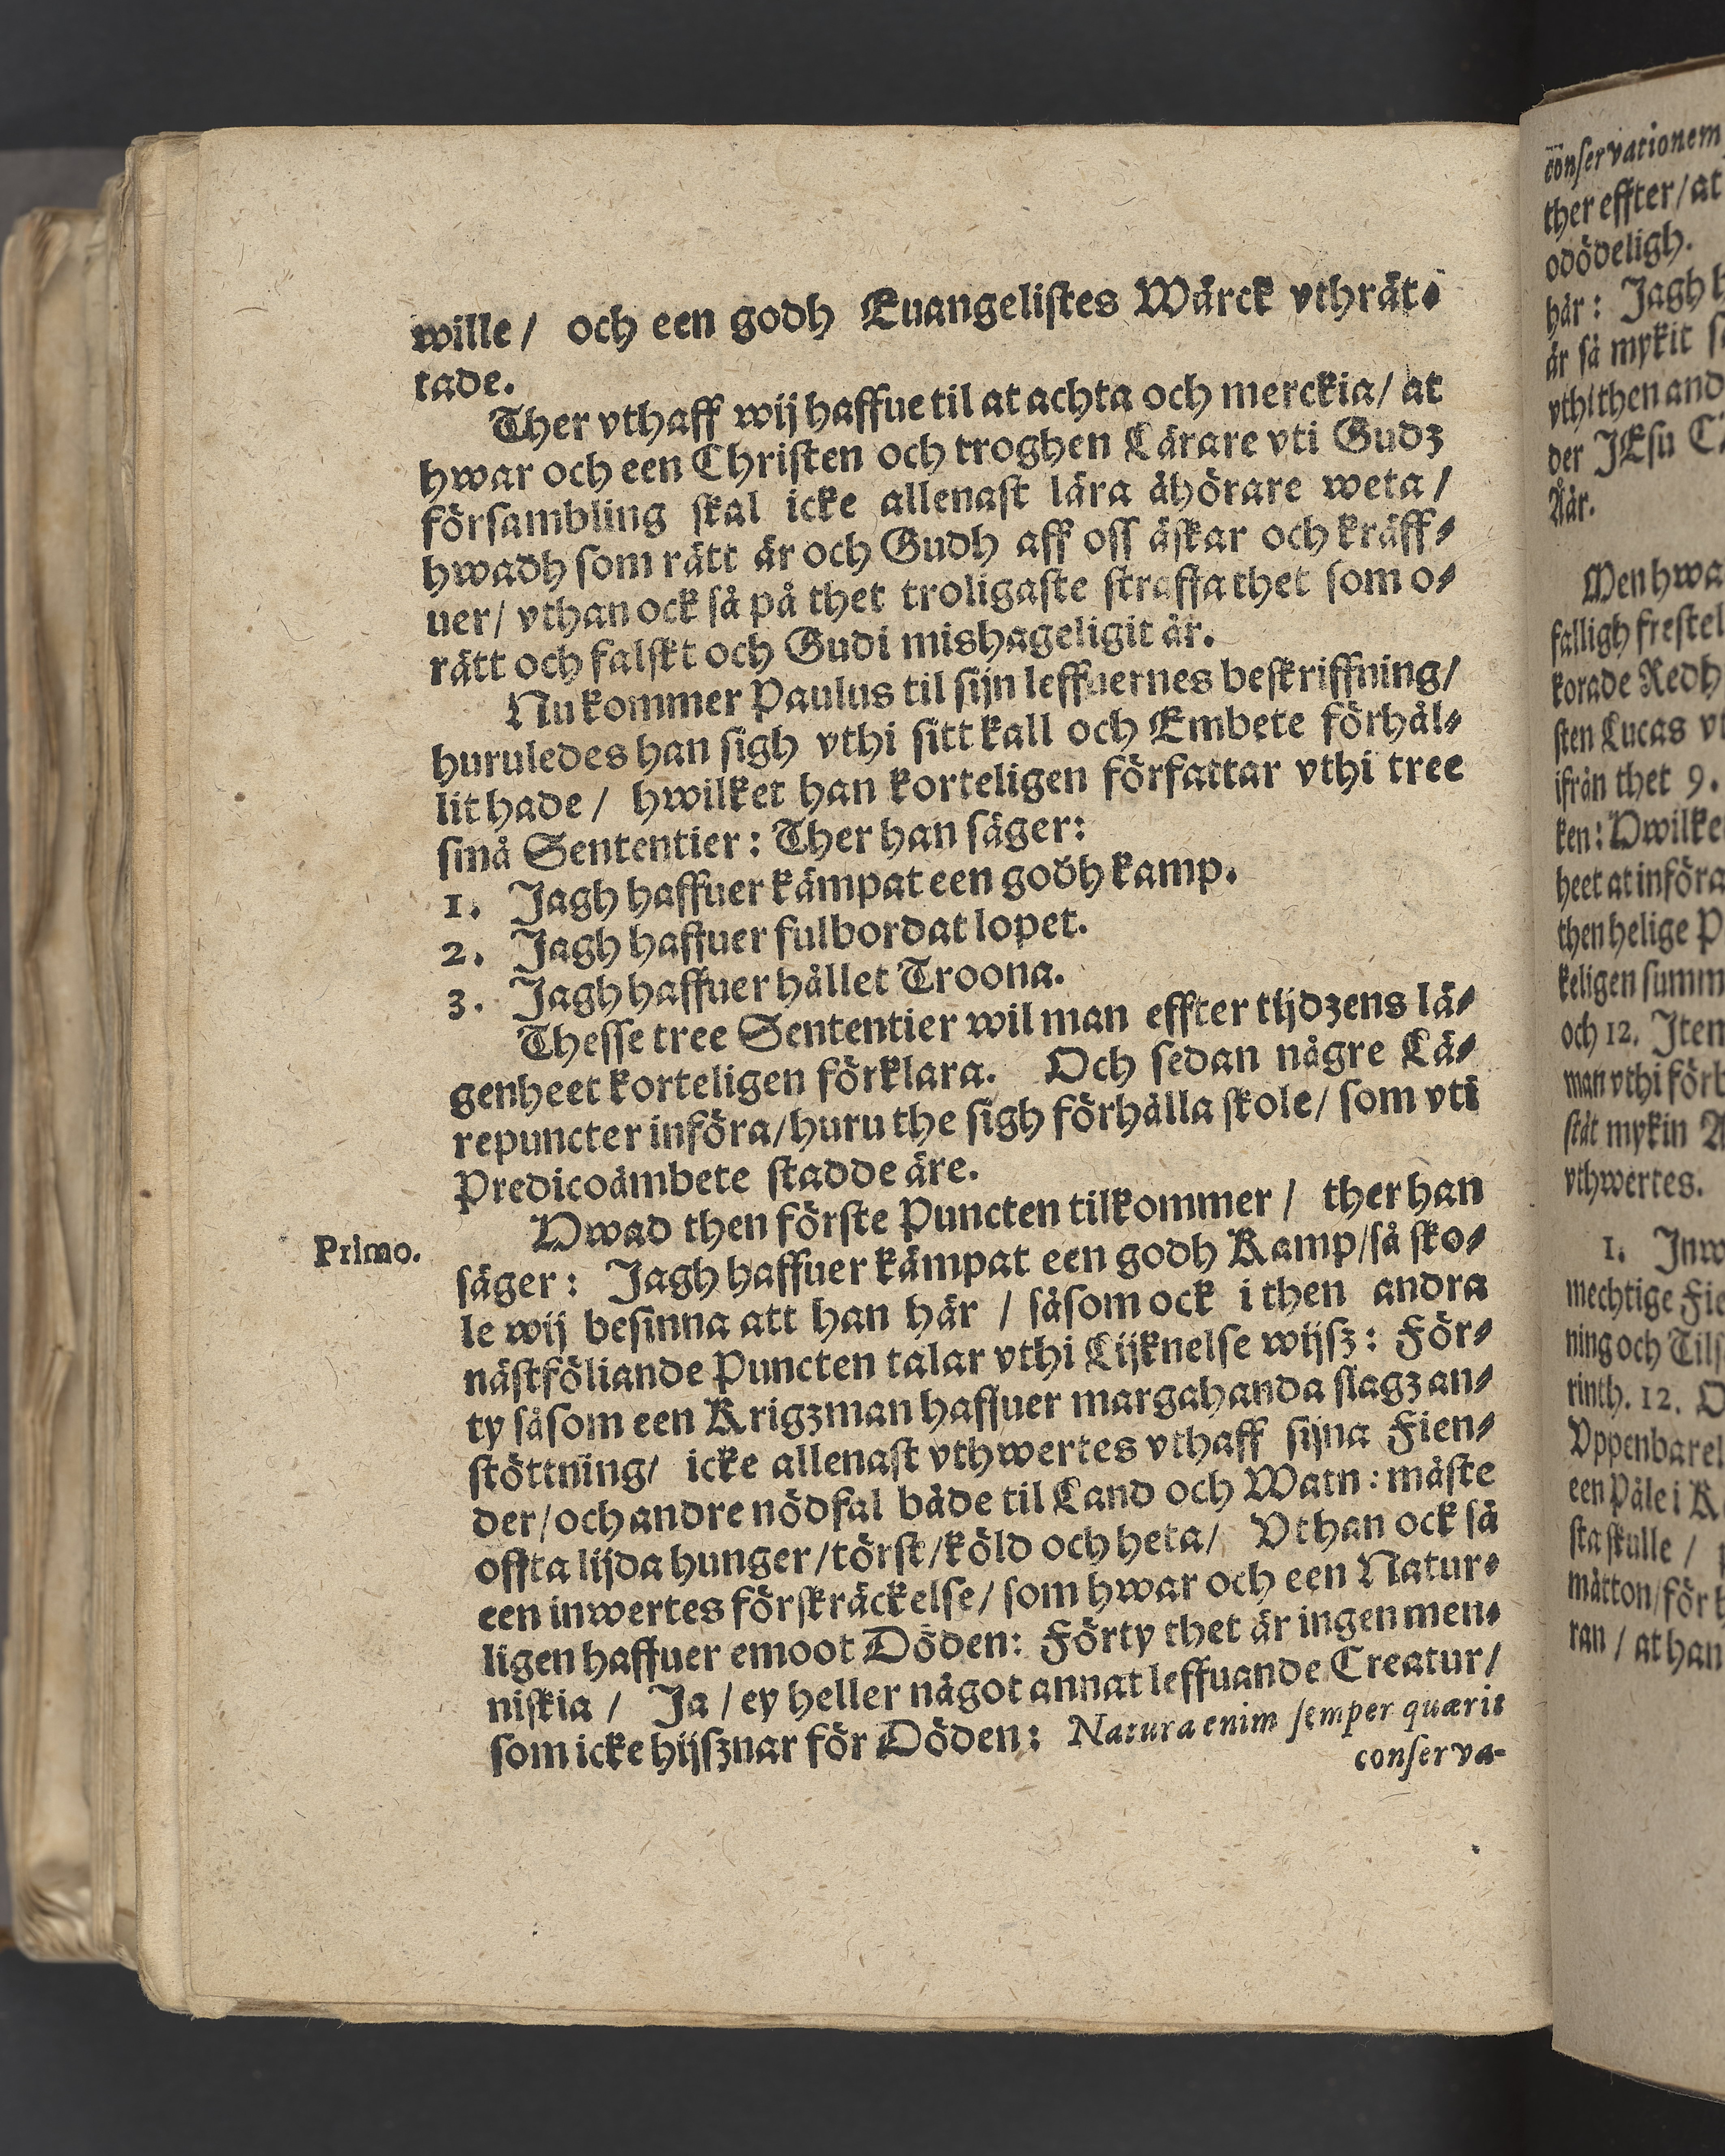 wille / och een godh Euangelistes Wärck vthrät⸗
tade.
Ther vthaff wij haffue til at achta och merckia / at
hwar och een Christen och troghen Lärare vti Gudz
försambling skal icke allenast lära åhörare weta /
hwadh som rätt är och Gudh aff oss äskar och kräff⸗
uer / vthan ock så på thet troligaste straffa thet som o⸗
rätt och falskt och Gudi mishageligit är.
Nu kommer Paulus til sijn leffuernes beskriffning /
huruledes han sigh vthi sitt kall och Embete förhål⸗
lit hade / hwilket han korteligen författar vthi tree
små Sententier : Ther han säger:
1. Jagh haffuer kämpat een godh kamp.
2. Jagh haffuer fulbordat lopet.
3. Jagh haffuer hållet Troona.
Thesse tree Sententier wil man effter tijdzens lä⸗
genheet korteligen förklara. Och sedan någre Lä⸗
repuncter införa / huru the sigh förhålla skole / som vti
Predicoämbete stadde äre.
Hwad then förste Puncten tilkommer / ther han
Primo.
säger : Jagh haffuer kämpat een godh Kamp / så sko⸗
le wij besinna att han här / såsom ock i then andra
nästföliande Puncten talar vthi Lijknelse wijsz : För⸗
ty såsom een Krigzman haffuer margahanda slagz an⸗
stöttning / icke allenast vthwertes vthaff sijna Fien⸗
der / och andre nödfal både til Land och Watn : måste
offta lijda hunger / törst / köld och heta / Vthan ock så
een inwertes förskräckelse / som hwar och een Natur⸗
ligen haffuer emoot Döden: Förty thet är ingen men⸗
niskia / Ja / ey heller något annat leffuande Creatur /
som icke hijsznar för Döden: Natura enim semper quærit
conserva-
conservationem
ther effter / at
odödeligh.
här : Jagh
är så mykit
vthi then and
der JEsu
Åår.
Men hwa
falligh frestel
korade Redh
sten Lucas
ifrån thet 9.
ken : Hwilke
heet at införa
then helige P
keligen summ
och 12. Item
man vthi förb
stät mykin
vthwertes.
1. Inw
mechtige Fie
ning och Tils
rinth. 12.
Vppenbarel
een Påle i
sta skulle /
måtton / för
ran / at han